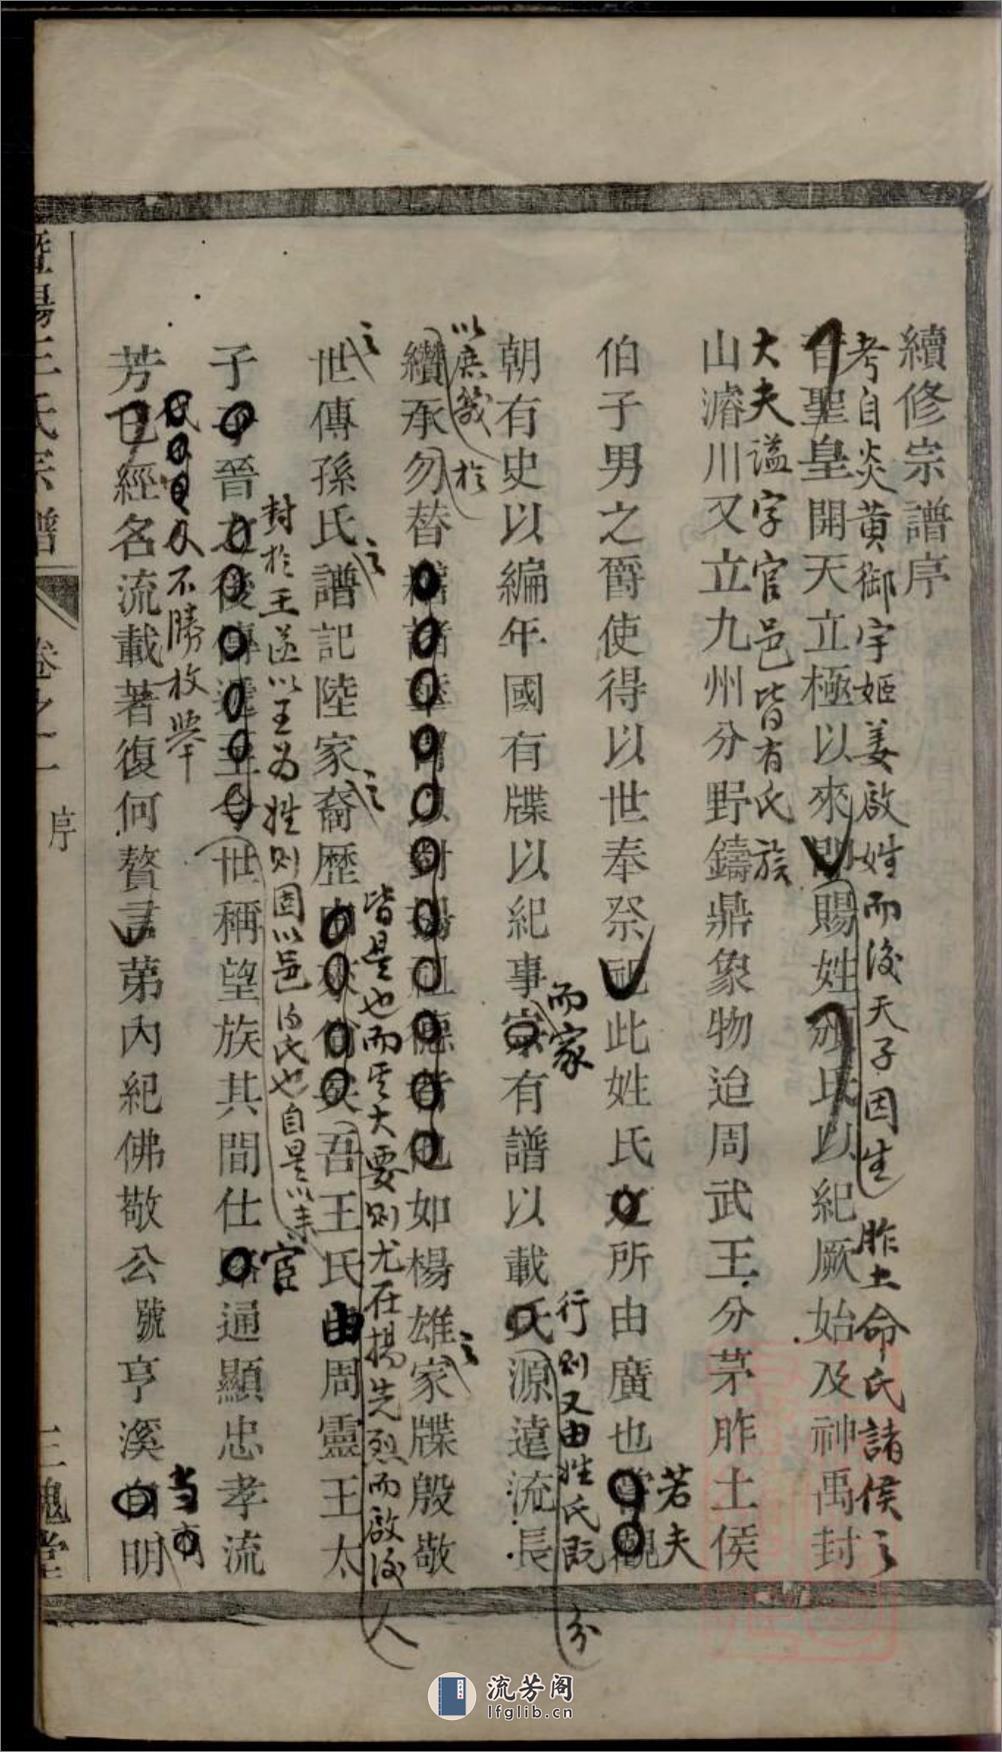 續修宗譜序
考自炎黃御宇姬姜啟姓而後天子因生胙土命氏諸侯之
昔聖皇開天立極以來即賜姓頒氏以紀厥始及神禹封
大夫謚字官邑皆有氏族
山濬川又立九州分野鑄鼎象物迨周武王分茅胙土侯
伯子男之爵使得以世奉祭祀此姓氏之所由廣也嘗觀
若夫
而家
行則又由姓氏既分
朝有史以編年國有牒以紀事家有譜以載氏源遠流長
以庶幾於
纘承勿替
對揚祖德者也如楊雄家牒殷敬
之
之
之
之
皆是也而其大要則尤在揚先烈而啟後人
世傳孫氏譜記陸家裔歷
吾王氏由周靈王太
封於王遂以王為姓則固以邑為氏也自是以來
子晉之後傳
至今世稱望族其間仕
宦
通顯忠孝流
不勝枚舉
芳已經名流載著復何贅言第內紀佛敬公號亨溪自明
當有
暨陽王氏宗譜
卷之一
序
三槐堂
流芳阁
lfglib.cn